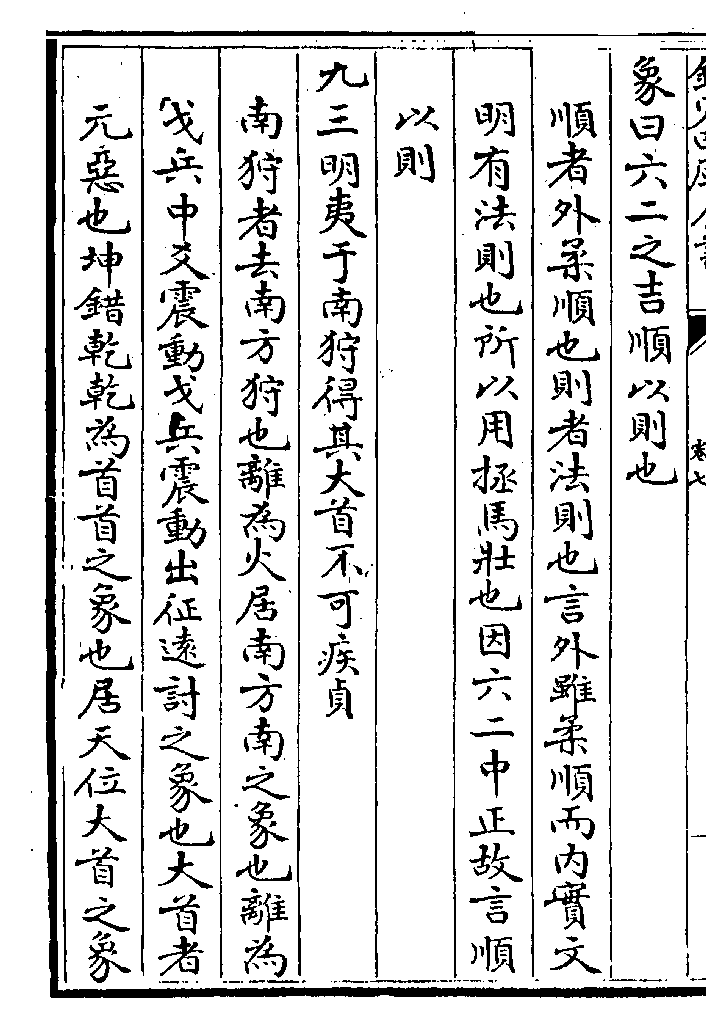 象曰六二之吉順以則也
順者外柔順也則者法則也言外雖柔順而内實文
明有法則也所以用拯馬壯也因六二中正故言順
以則
九三明夷于南狩得其大首不可疾貞
南狩者去南方狩也離為火居南方南之象也離為
戈兵中爻震動戈兵震動出征遠討之象也大首者
元惡也坤錯乾乾為首首之象也居天位大首之象
卷七